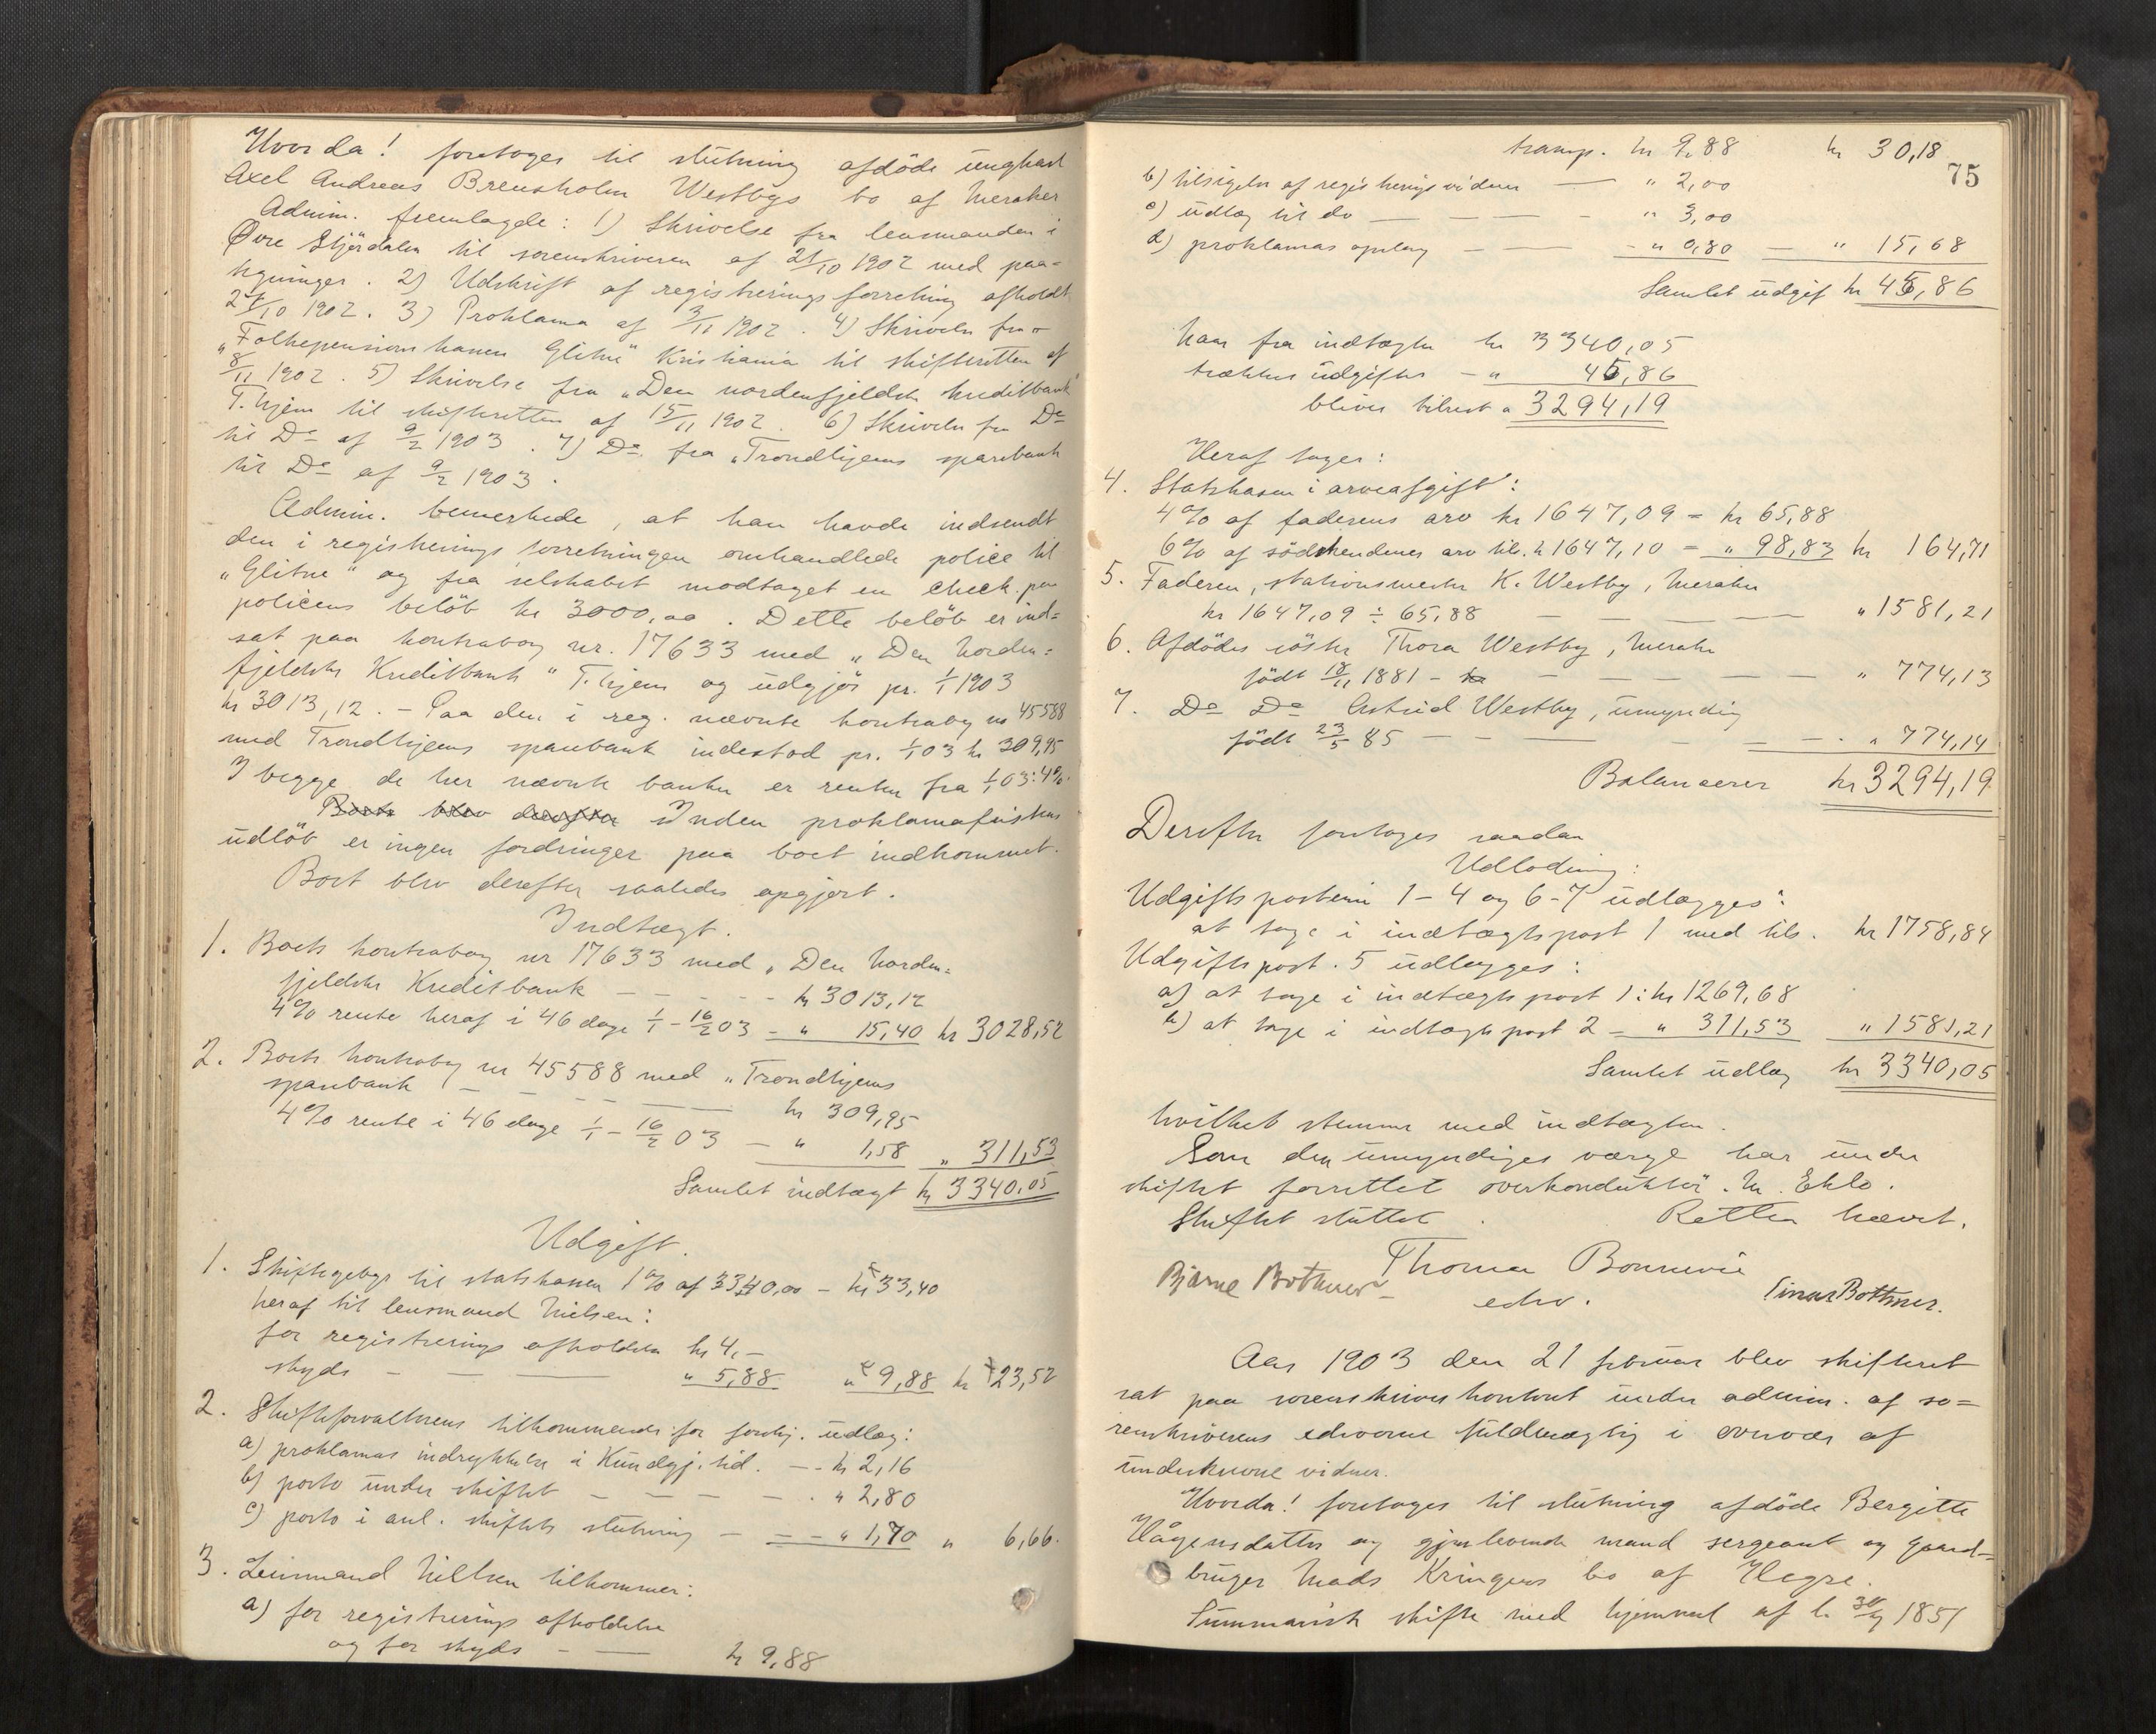 Hvorda! foretoges til slutning afdöde ungkarl
Axel Andreas Brensholm Westbys bo af Meraker
Admin. fremlagde: 1) Skrivelse fra lensmanden i
Øvre Stjördalen til sorenskriveren af 21/10 1902 med paa-
tegninger. 2) Udskrift af registreringsforretning afholdt
27/10 1902. 3) Proklama af 3/11 1902. 4) Skrivelse fra
"Folkepensionskassen Glitne" Kristiania til skifteretten af
8/11 1902. 5) Skrivelse fra "Den nordenfjeldske kreditbank"
T.hjem til skifteretten af 15/11 1902. 6) Skrivelse fra Do
til Do af 9/2 1903. 7) Do fra "Trondhjems sparebank
til Do af 9/2 1903.
Admin. bemerkede, at han havde indsendt
den i registreringsforretningen omhandlede police til
"Glitne" og fra selskabet modtaget en check paa
policens belöb kr 3000,00. Dette belöb er ind=
sat paa kontrabog nr. 17633 med "Den Norden=
fjeldske Kreditbank" T.hjem og udgjör pr. 1/1 1903
kr 3013,12. - Paa den i reg. nævnte kontrabog nr 45588
med Trondhjems sparebank indestod pr. 1/1 03 kr 309,95
I begge de her nævnte banker er renten fra 1/1 03: 4%.
Boets blev derefter Inden proklamafristens
udlöb er ingen fordringer paa boet indkommet.
Boet blev derefter saaledes opgjort.
Indtægt.
1. Boets kontrabog nr 17633 med "Den Norden=
fjeldske Kreditbank - - - - - kr 3013,12
4% rente heraf i 46 dage 1/1 - 16/2 03 - " 15,40 kr 3028,52
2. Boets kontrabog nr 45588 med "Trondhjems
sparebank - - - - kr 309,95
4% rente i 46 dage 1/1 - 16/2 03 - " 1,58 " 311,53
Samlet indtægt kr 3340,05
Udgift.
1. Skiftegebyr til statskassen 1% af 3340,00 - kr 33,40
heraf til lensmand Nielsen:
for registrerings afholdelse kr 4,-
skyds - - - " 5,88 " 9,88 kr 23,52
2. Skifteforvalterens tilkommende for forskj. udlæg:
a) proklamas indrykkelse i Kundgj. tid. - - kr 2,16
b) porto under skiftet - - - - - " 2,80
c) porto i anl. skiftets slutning - - - " 1,70 " 6,66.
3. Lensmand Nielsen tilkommer:
a) for registrerings afholdelse
og for skyds - - kr 9,88
transp. kr 9,88 kr 30,18
75
b) tilsigelse af registreringsvidner - " 2,00
c) udlæg til do - - - - " 3,00
d) proklamas oplæg - - - " 0,80 - " 15,68
Samlet udgift kr 45,86
Naar fra indtægten kr 3340,05
trækkes udgifter - " 45,86
bliver tilrest " 3294,19
Heraf tages:
4. Statskassen i arveafgift:
4% af faderens arv kr 1647,09 = kr 65,88
6% af södskendenes arv tils. kr 1647,10 = " 98,83 kr 164,71
5. Faderen, stationsmester K. Westby, Meraker
kr 1647,09 ÷ 65,88 - - - - " 1581,21
6. Afdödes söster Thora Westby, Meraker
födt 18/11 1881 - - - - - " 774,13
7. Do Do Astrid Westby, umyndig
födt 23/5 85 - - - - - " 774,14
Balancerer kr 3294,19
Derefter foretoges saadan
Udlodning:
Udgiftsposterne 1-4 og 6-7 udlægges:
at tage i indtægtspost 1 med tils. kr 1758,84
Udgiftspost. 5 udlægges:
a) at tage i indtægtspost 1: kr 1269,68
b) at tage i indtægtspost 2 - " 311,53 " 1581,21
Samlet udlæg kr 3340,05
hvilket stemmer med indtægten.
Som den umyndiges værge har under
skiftet forrettet overkonduktör M. Eklo.
Skiftet sluttet. Retten hævet.
Thomas Bonnevie
edsv.
Bjarne Bothner
Einar Bothner.
Aar 1903 den 21 februar blev skifteret
sat paa sorenskriverkontoret under admin. af so=
renskriverens edsvorne fuldmægtig i overvær af
underskrevne vidner.
Hvorda! foretoges til slutning afdöde Bergitte
Hågensdatter og gjenlevende mand sergeant og gaard=
bruger Mads Kringens bo af Hegre.
Summarisk skifte med hjemmel af l. 30/7 1851